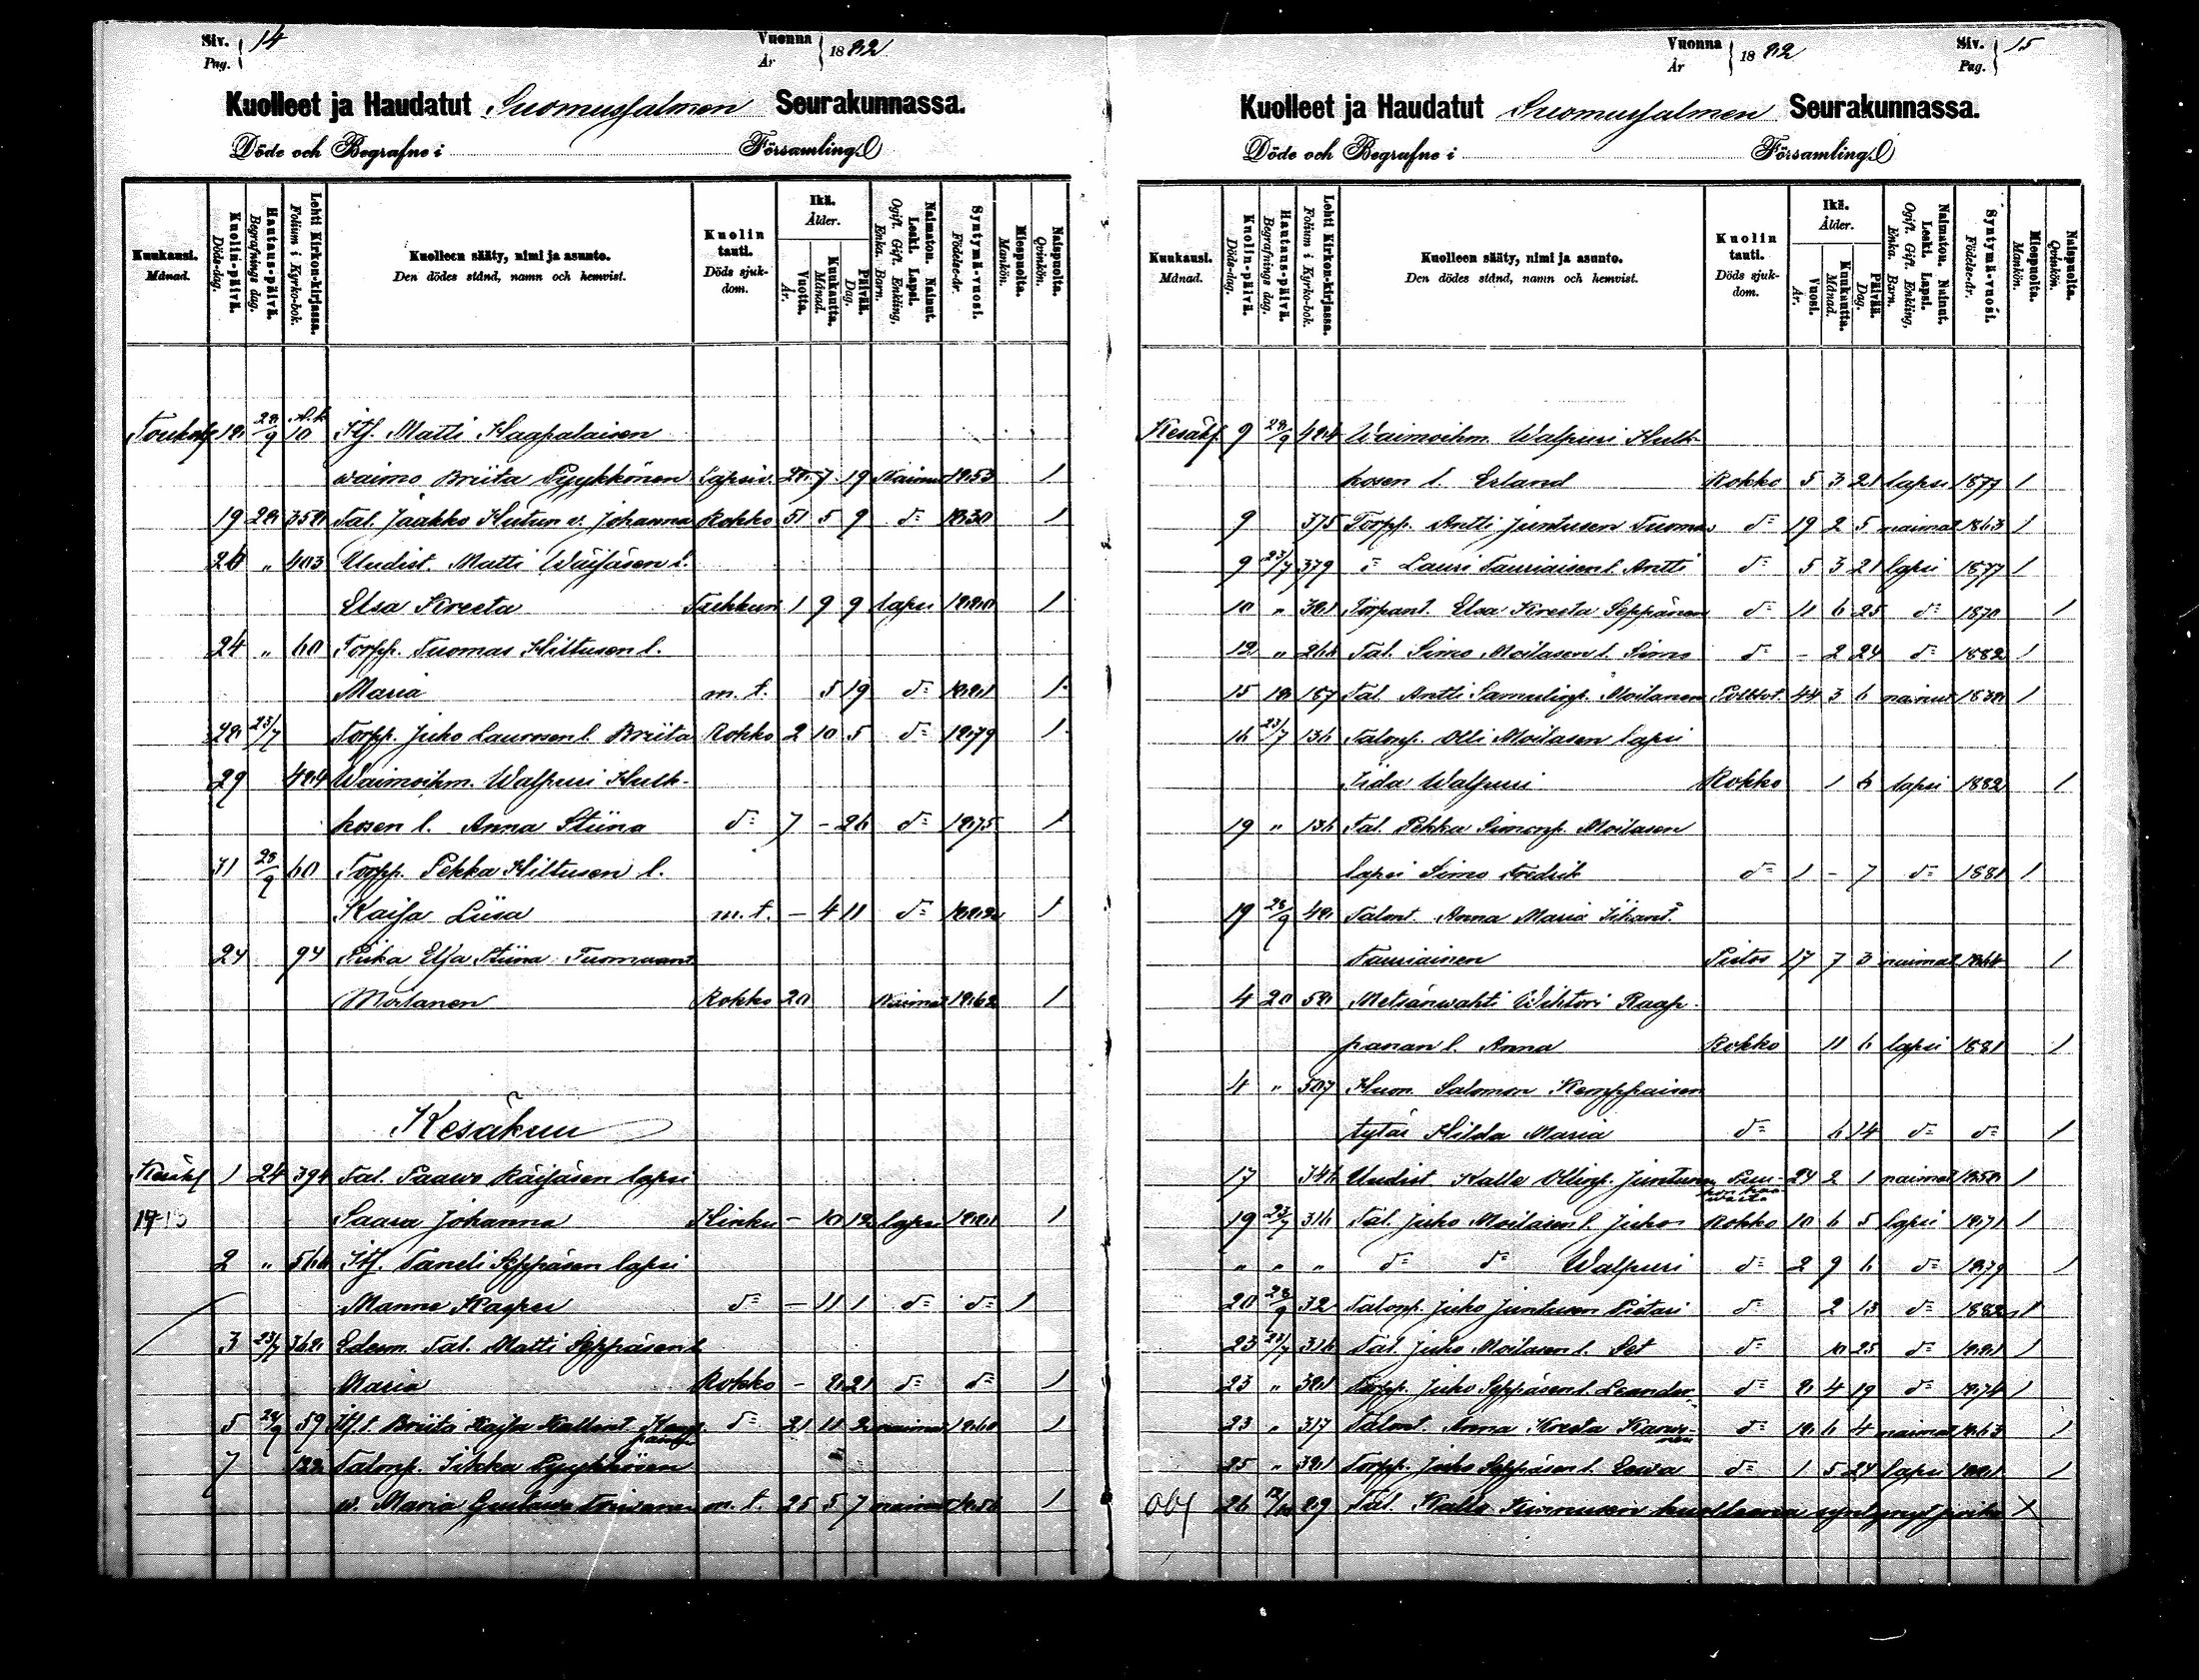 Siv. Pag. 14
Vuonna År 1882
Kuolleet ja Haudatut Suomussalmen Seurakunnassa.
Döde och Begrafne i Församling
Kuukausi. Månad.
Kuolin-päivä. Döds-dag.
Hautaus-päivä. Begrafnings dag.
Lehti Kirkon-kirjassa. Folium i Kyrko-bok.
Kuolleen sääty, nimi ja asunto. Den dödes stånd, namn och hemvist.
Kuolin tauti. Döds sjukdom.
Ikä. Ålder.
Vuotta. År.
Kuukautta. Månad.
Päivää. Dag.
Naimaton. Nainut. Leski. Lapsi. Ogift. Gift. Enkling, Enka. Barn.
Syntymä-vuosi. Födelse-år.
Miespuolta. Mankön.
Naispuolta. Qvinkön.
Toukok 18 28/9 10 Itf. Matti Haapalaisen
waimo Briita Pyykkönen Lapsiv. 28 7 19 Nainut 1853 1
19 28 358 Tal. Jaakko Hütun v. Johanna Rokko 51 5 9 d:o 1830 1
20 " 403 Uudist. Matti Wäisäsen l.
Elsa Kreeta Tuhkuri 1 9 9 lapsi 1880 1
24 " 60 Torpp. Tuomas Hiltusen l.
Maria m. t. 5 19 d:o 1881 1
28 23/7 Torpp. Juho Laurosen l. Briita Rokko 2 10 5 d:o 1879 1
29 484 Waimoihm. Walpuri Hulk-
kosen l. Anna Stiina d:o 7 - 26 d:o 1875 1
31 28/9 60 Torpp. Pekka Hiltusen l.
Kaisa Liisa m. t. - 4 11 d:o 1882 1
24 94 Piika Elsa Stiina Tuomaant
Moilanen Rokko 20 Naimat 1862 1
Kesäkuu
Kesäk 1 24 394 Tal. Paawo Räisäsen lapsi
Saara Johanna Hinku - 10 12 lapsi 1881 1
2 " 566 Itf. Taneli Seppäsen lapsi
Manne Kasper d:o - 11 1 d:o d:o 1
3 23/7 362 Edesm. Tal. Matti Seppäsen l
Maria Rokko - 8 21 d:o d:o 1
5 28/9 59 Itf. t. Briita Kaisa Kallent. d:o 21 11 2 naimat 1860 1
7 122 Talonp. Iikka Pyykkösen
w. Maria Gustawa m. t. 25 5 7 nainut 1856 1
Siv. Pag. 15
Vuonna År 1882
Kuolleet ja Haudatut Suomussalmen Seurakunnassa.
Döde och Begrafne i Församling
Kuukausi. Månad.
Kuolin-päivä. Döds-dag.
Hautaus-päivä. Begrafnings dag.
Lehti Kirkon-kirjassa. Folium i Kyrko-bok.
Kuolleen sääty, nimi ja asunto. Den dödes stånd, namn och hemvist.
Kuolin tauti. Döds sjukdom.
Ikä. Ålder.
Vuosi. År.
Kuukautta. Månad.
Päivää. Dag.
Naimaton. Nainut. Leski. Lapsi. Ogift. Gift. Enkling, Enka. Barn.
Syntymä-vuosi. Födelse-år.
Miespuolta. Mankön.
Naispuolta. Qvinkön.
Kesäk 9 28/9 484 Waimoihm. Walpuri Hulk-
kosen l. Erland Rokko 5 3 21 lapsi 1877 1
9 375 Torpp. Antti Juntusen Tuomas d:o 19 2 5 naimat 1863 1
9 23/7 379 d:o Lauri Tauriaisen l. Antti d:o 5 3 21 lapsi 1877 1
10 " 381 Torpant. Elsa Kreeta Seppänen d:o 11 6 25 d:o 1870 1
12 " 266 Tal. Simo Moilasen l. Simo d:o - 2 24 d:o 1882 1
15 18 157 Tal. Antti Samulinp. Moilanen 44 3 6 nainut 1838 1
16 23/7 136 Talonp. Olli Moilasen lapsi
Iida Walpuri Rokko 1 6 lapsi 1882 1
19 " 136 Tal. Pekka Simonp. Moilasen
lapsi Simo Fredrik d:o 1 - 7 d:o 1881 1
19 28/9 48 Talont. Anna Maria
Tauriainen Pistos 17 7 3 naimat 1864 1
4 20 58 Metsänwahti Wihtori Raap-
panan l. Anna Rokko 11 6 lapsi 1881 1
4 " 507 Huon. Salomon Kemppaisen
tytär Hilda Maria d:o 6 14 d:o d:o 1
17 346 Uudist. Kalle Ollinp. Juntunen 24 2 1 naimat 1858 1
19 23/7 316 Tal. Juho Moilasen l. Juho Rokko 10 6 5 lapsi 1871 1
" " " d:o d:o Walpuri d:o 2 9 6 d:o 1879 1
20 28/9 32 Talonp. Juho Juntusen Pietari d:o 2 13 d:o 1882 1
23 23/7 316 Tal. Juho Moilasen l. Set d:o 10 25 d:o 1881 1
23 " 381 Torpp. Juho Seppäsen l. Leander d:o 8 4 19 d:o 1874 1
23 " 317 Talont. Anna Kreeta d:o 18 6 4 naimat 1863 1
25 " 381 Torpp. Juho Seppäsen l. Eewa d:o 1 5 24 lapsi 1881 1
26 29 Tal. Kalle Kinnusen kuolleena syntynyt poika X